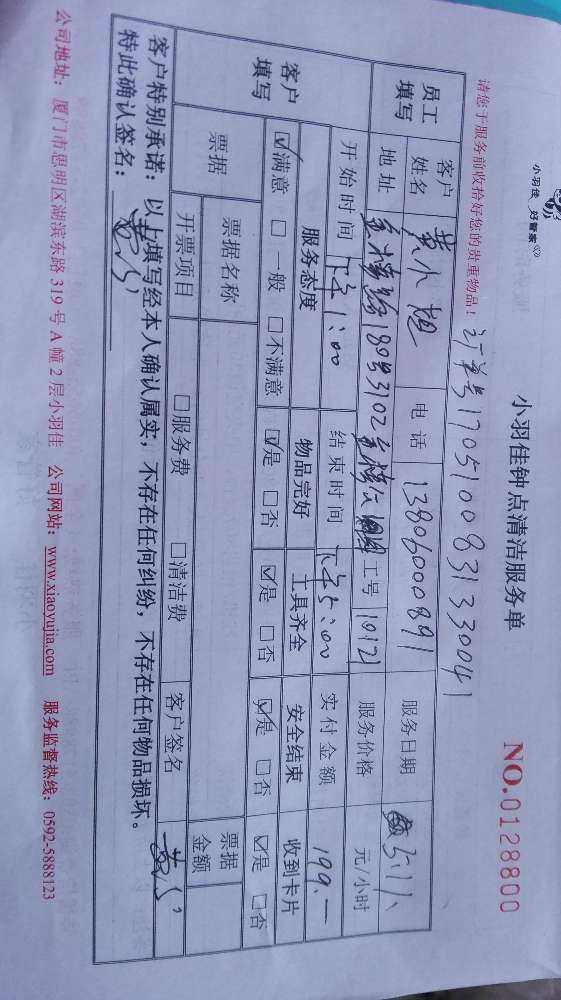 小羽佳 好管家
小羽佳钟点清洁服务单
NO.0128800
请您于服务前收拾好您的贵重物品！
订单号170510083133 0041
员工填写
客户姓名 黄小姐 电话 13806000891 服务日期 5.11
地址 180号3102 工号 10121 服务价格 元/小时
客户填写
开始时间 下午1:00 结束时间 下午5:00 实付金额 199.—
服务态度 物品完好 工具齐全 安全结束 收到卡片
☑满意 □一般 □不满意 ☑是 □否 ☑是 □否 ☑是 □否 ☑是 □否
票据 票据名称 票据金额
开票项目 □服务费 □清洁费 客户签名
客户特别承诺：以上填写经本人确认属实，不存在任何纠纷，不存在任何物品损坏。
特此确认签名：
公司地址：厦门市思明区湖滨东路 319 号 A 幢 2 层小羽佳 公司网站：www.xiaoyujia.com 服务监督热线：0592-5888123